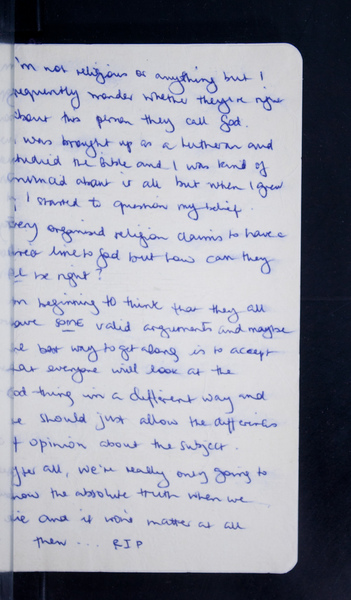 I'm not religious or anything but I
frequently wonder whether they're right
about this person they call God.
I was brought up as a Lutheran and
studied the Bible and I was kind of
convinced about it all but when I grew
up I started to question my belief.
Every organised religion claims to have a
direct line to God but how can they
all be right?
I'm beginning to think that they all
have SOME valid arguments and maybe
the best way to get along is to accept
that everyone will look at the
God thing in a different way and
we should just allow the differences
of opinion about the subject.
After all, we're really only going to
know the absolute truth when we
die and it won't matter at all
then... RIP